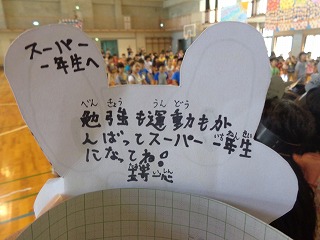 スーパー
一年生へ
べんきょう うんどう
勉強も運動もが
んばってスーパー一年生
いちねんせい
になってね!